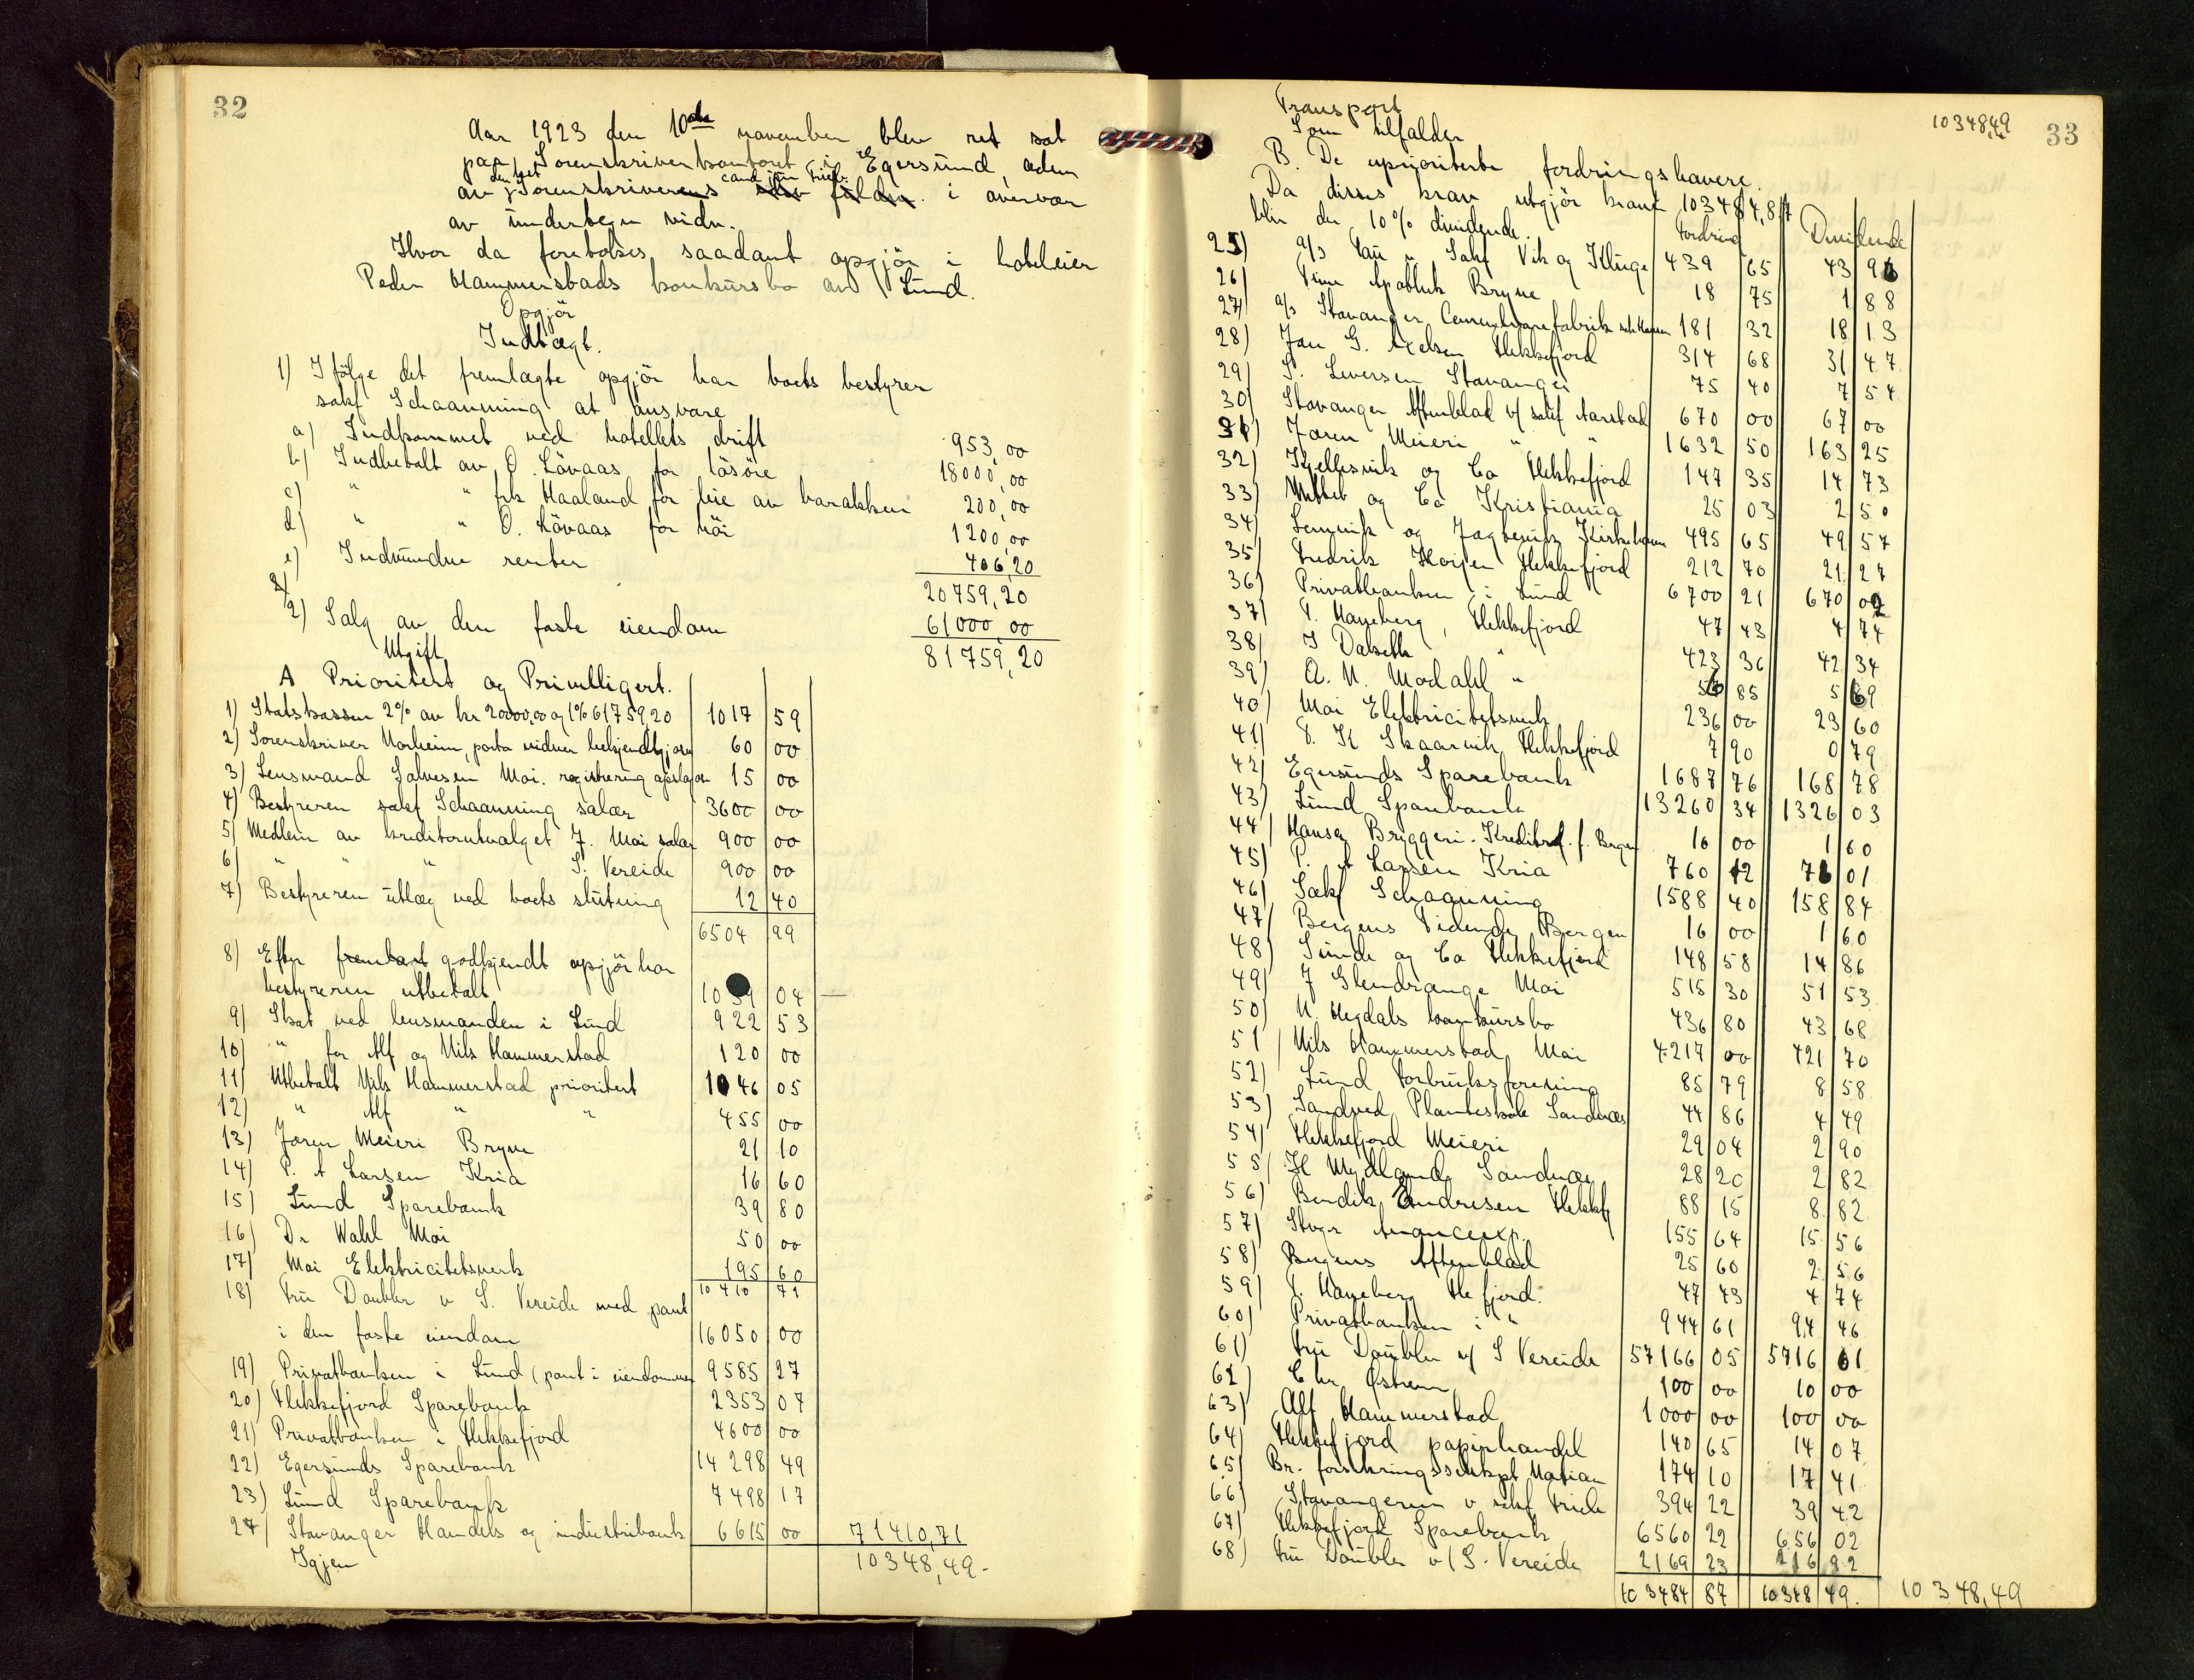 32
Aar 1923 den 10de november blev ret sat
paa Sorenskriverkontoret i Egersund
den const. cand jur
av Sorenskriverens i overvær
av undertegn vidn.
Hvor da foretokes saadant opgjör i hoteleier
Peder Hammerstads konkursbo av Lund.
Opgjör
Indtægt.
1) Ifölge det fremlagte opgjör har boets bestyrer
sakf Schaanning at ansvare
a) Indkommet ved hotellets drift 953,00
b) Indbetalt av O. Lövaas for lösöre 18000,00
c) " " frk Haaland for leie av barakken 200,00
d) " " O. Lövaas for höi 1200,00
e) Indvundne renter 406,20
20759,20
2) Salg av den faste eiendom 61000,00
81759,20
Utgift
A Prioritert og Privilligert.
1) Statskassen 2% av kr 20000,00 og 1% 61759,20 1017 59
2) Sorenskriver Norheim, porto vidner bekjendtgjörs 60 00
3) Lensmand Salvesen Moi. registrering opslag 15 00
4) Bestyreren sakf Schaanning salær 3600 00
5) Medlem av kreditorutvalget J. Moi salær 900 00
6) " " " S. Vereide 900 00
7) Bestyreren utlæg ved boets slutning 12 40
6504 99
8) Efter fremlagt godkjendt opgjör har
bestyreren utbetalt 1039 04
9) Skat ved lensmanden i Lund 922 53
10) " for Alf og Nils Hammerstad 120 00
11) Utbetalt Nils Hammerstad prioritert 1046 05
12) " Alf " " 455 00
13) Jæren Meieri Bryne 21 10
14) P. A Larsen Kria 16 60
15) Lund Sparebank 39 80
16) Dr Wahl Moi 50 00
17) Moi Elektricitetsverk 195 60
10 410 71
18) Fru Doubler v S. Vereide med pant
i den faste eiendom 16050 00
19) Privatbanken i Lund (pant i eiendommen 9585 27
20) Flekkefjord Sparebank 2353 07
21) Privatbanken i Flekkefjord 4600 00
22) Egersunds Sparebank 14298 49
23) Lund Sparebank 7498 17
24) Stavanger Handels og industribank 6615 00 71410,71
Igjen 10348,49-
33
Transport 10348,49
Som tilfalder
B. De uprioriterte fordringshavere.
Da disses krav utgjör kront 103484,87
blir der 10% dividende. Fordring Dividende
25) a/s Tau v Sakf Vik og Kluge 439 65 43 96
26) Time Apothek Bryne 18 75 1 88
27) a/s Stavanger Cementvarefabrik 181 32 18 13
28) Jan G. Axelsen Flekkefjord 314 68 31 47
29) S. Siversen Stavanger 75 40 7 54
30) Stavanger Aftenblad v/ sakf Aarstad 670 00 67 00
31) Jæren Meieri " " 1632 50 163 25
32) Kjellesvik og Co Flekkefjord 147 35 14 73
33) og Co Kristiania 25 03 2 50
34) og Kirkehavn 495 65 49 57
35) Fredrik Flekkefjord 212 70 21 27
36) Privatbanken i Lund 6700 21 670 02
37) T. Haneberg, Flekkefjord 47 43 4 74
38) J Dalseth " 423 36 42 34
39) A. N. Modahl " 56 85 5 69
40) Moi Elektricitetsverk 236 00 23 60
41) T. K Skaarvik Flekkefjord 7 90 0 79
42) Egersunds Sparebank 1687 76 168 78
43) Lund Sparebank 13260 34 1326 03
44) Hansa Bryggeri. Kreditorf. f. Bergen 16 00 1 60
45) P. A Larsen Kria 760 12 76 01
46) Sakf Schaanning 1588 40 158 84
47) Bergens Tidende Bergen 16 00 1 60
48) Sunde og Co Flekkefjord 148 58 14 86
49) J Glendrange Moi 515 30 51 53
50) N. Hegdals konkursbo 436 80 43 68
51) Nils Hammerstad Moi 4217 00 421 70
52) Lund Forbruksforening 85 79 8 58
53) Sandved Planteskole Sandnæs 44 86 4 49
54) Flekkefjord Meieri 29 04 2 90
55) H Mydland Sandnæs 28 20 2 82
56) Bendik Endresen Flekkefj 88 15 8 82
57) Stvgr Anonceexp. 155 64 15 56
58) Bergens Aftenblad 25 60 2 56
59) T. Haneberg Flefjord. 47 43 4 74
60) Privatbanken i " 944 61 94 46
61) Fru Doubler v/ S Vereide 57166 05 5716 61
62) Chr Østrem 100 00 10 00
63) Alf Hammerstad 1000 00 100 00
64) Flekkefjord papirhandel 140 65 14 07
65) Br. forsikringsselskpt Norian 174 10 17 41
66) Stavangeren v sakf 394 22 39 42
67) Flekkefjord Sparebank 6560 22 656 02
68) Fru Doubler v/ S. Vereide 2169 23 216 92
103484 87 10348 49. 10348,49